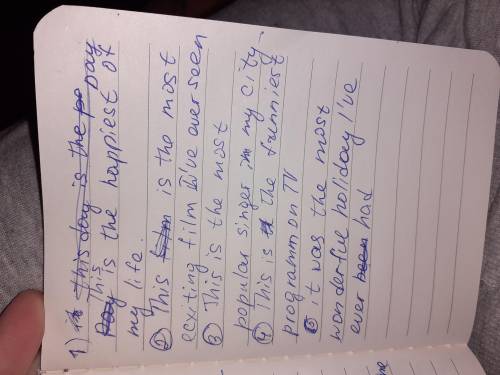 1) it this day is the po day
Day This is the happiest of
my life.
② This film is the most
exciting film I've ever seen
③ This is the most
popular singer in my city.
④ This is the funniest
programm on TV
⑤ it was the most
wonderful holiday I've
ever been had